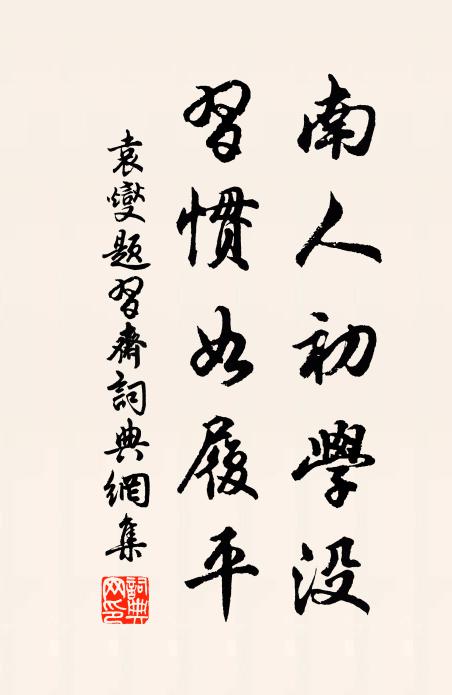 南人初學没
習慣如履平
袁燮題習齋詞典網集
詞典網印